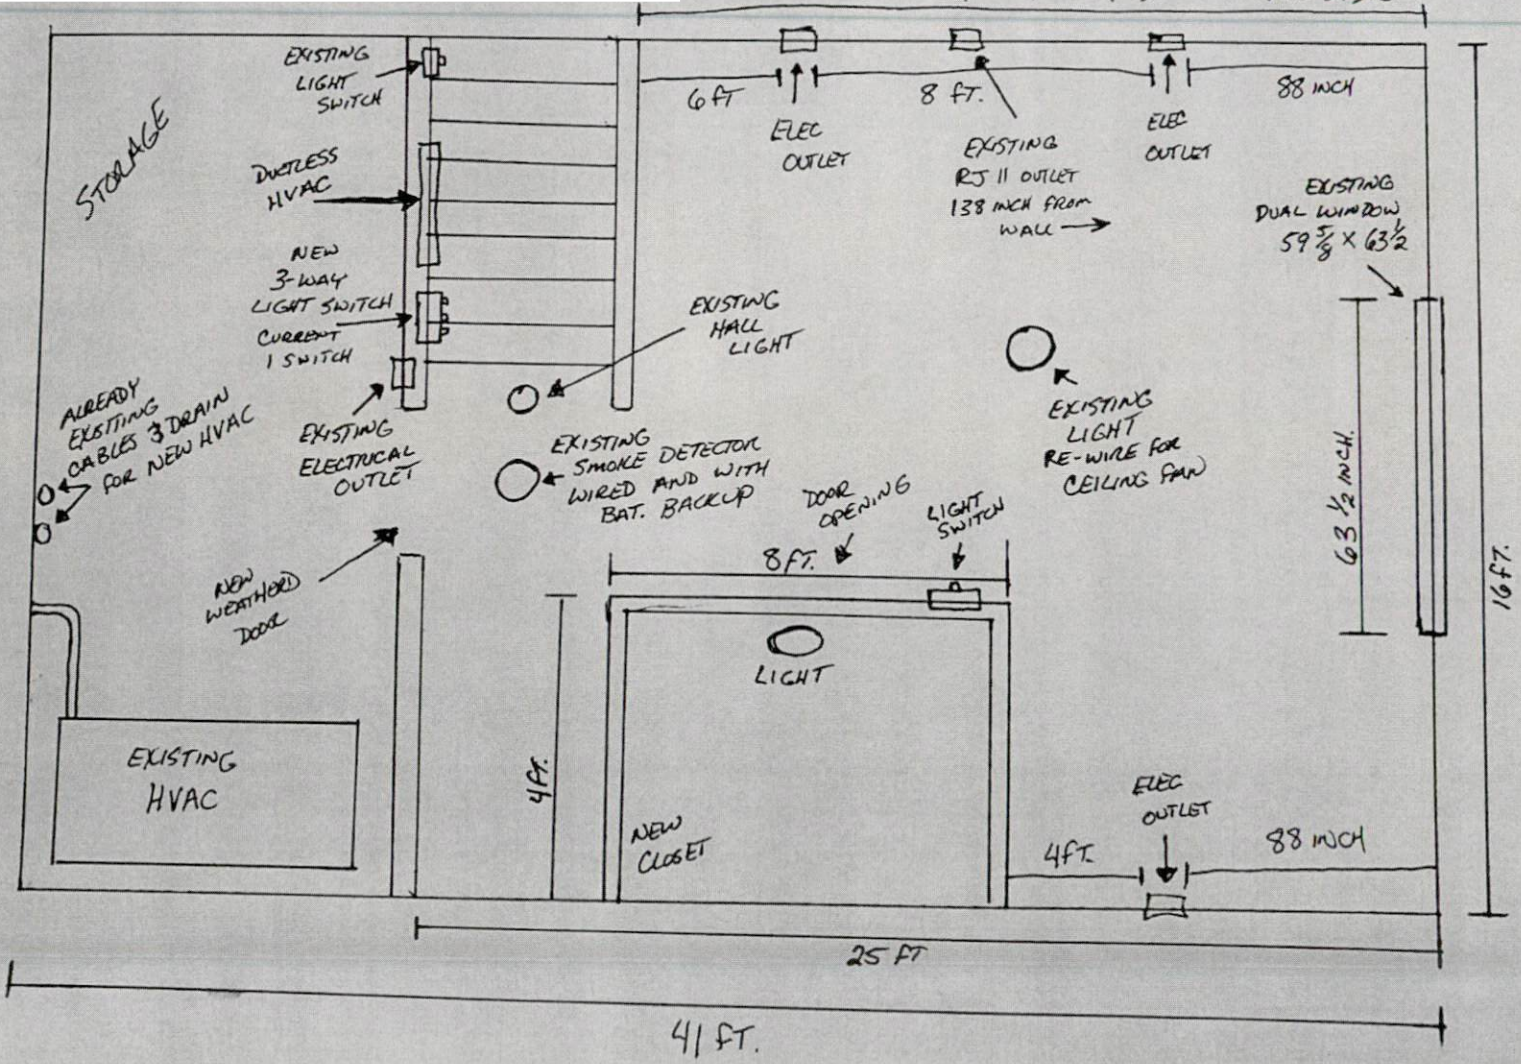 EXISTING
LIGHT
SWITCH
STORAGE
DUCTLESS
HVAC
NEW
3-WAY
LIGHT SWITCH
CURRENT
1 SWITCH
ALREADY
EXISTING
CABLES & DRAIN
FOR NEW HVAC
EXISTING
ELECTRICAL
OUTLET
NEW
WEATHERD
DOOR
EXISTING
HVAC
6 FT
ELEC
OUTLET
8 FT.
EXISTING
RJ 11 OUTLET
138 INCH FROM
WALL
ELEC
OUTLET
88 INCH
EXISTING
DUAL WINDOW
59 5/8 X 63 1/2
EXISTING
HALL
LIGHT
EXISTING
SMOKE DETECTOR
WIRED AND WITH
BAT. BACKUP
EXISTING
LIGHT
RE-WIRE FOR
CEILING FAN
63 1/2 INCH.
16 FT.
DOOR
OPENING
LIGHT
SWITCH
8 FT.
LIGHT
4 FT.
NEW
CLOSET
ELEC
OUTLET
4 FT.
88 INCH
25 FT
41 FT.